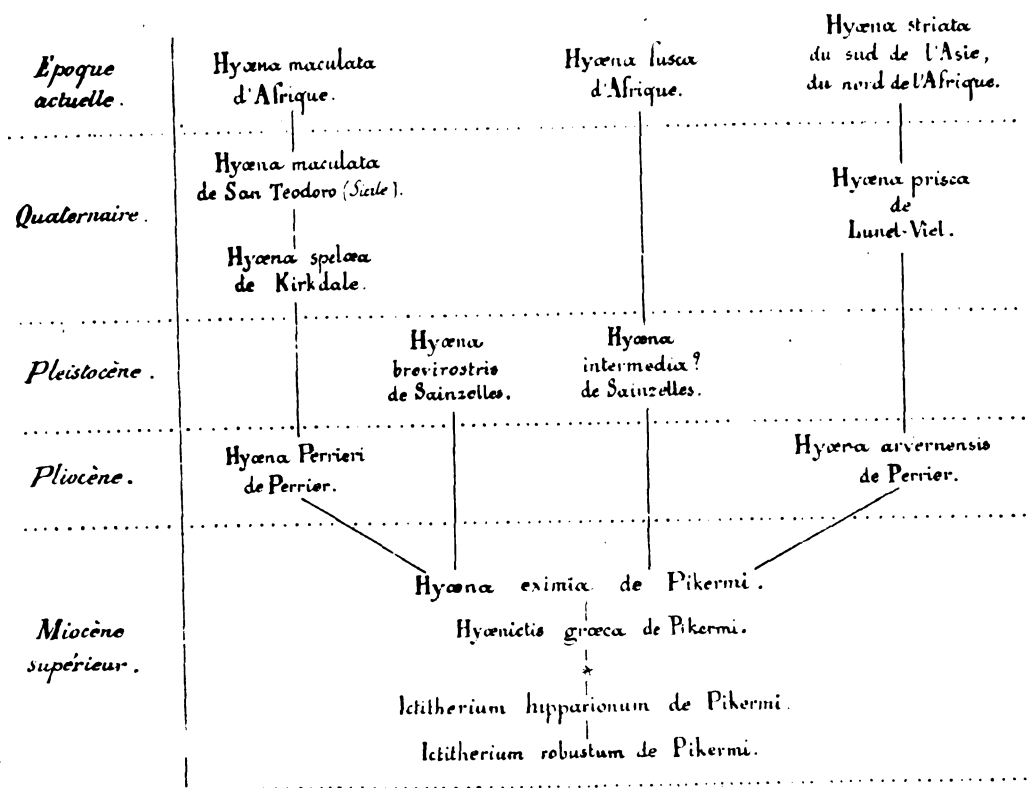 Époque
actuelle.
Hyæna maculata
d'Afrique.
Hyæna fusca
d'Afrique.
Hyæna striata
du sud de l'Asie,
du nord de l'Afrique.
Quaternaire.
Hyæna maculata
de San Teodoro (Sicile).
Hyæna spelæa
de Kirkdale.
Hyæna prisca
de
Lunel-Viel.
Pleistocène.
Hyæna
brevirostris
de Sainzelles.
Hyæna
intermedia?
de Sainzelles.
Pliocène.
Hyæna Perrieri
de Perrier.
Hyæna arvernensis
de Perrier.
Miocène
supérieur.
Hyæna eximia de Pikermi.
Hyænictis græca de Pikermi.
Ictitherium hipparionum de Pikermi.
Ictitherium robustum de Pikermi.